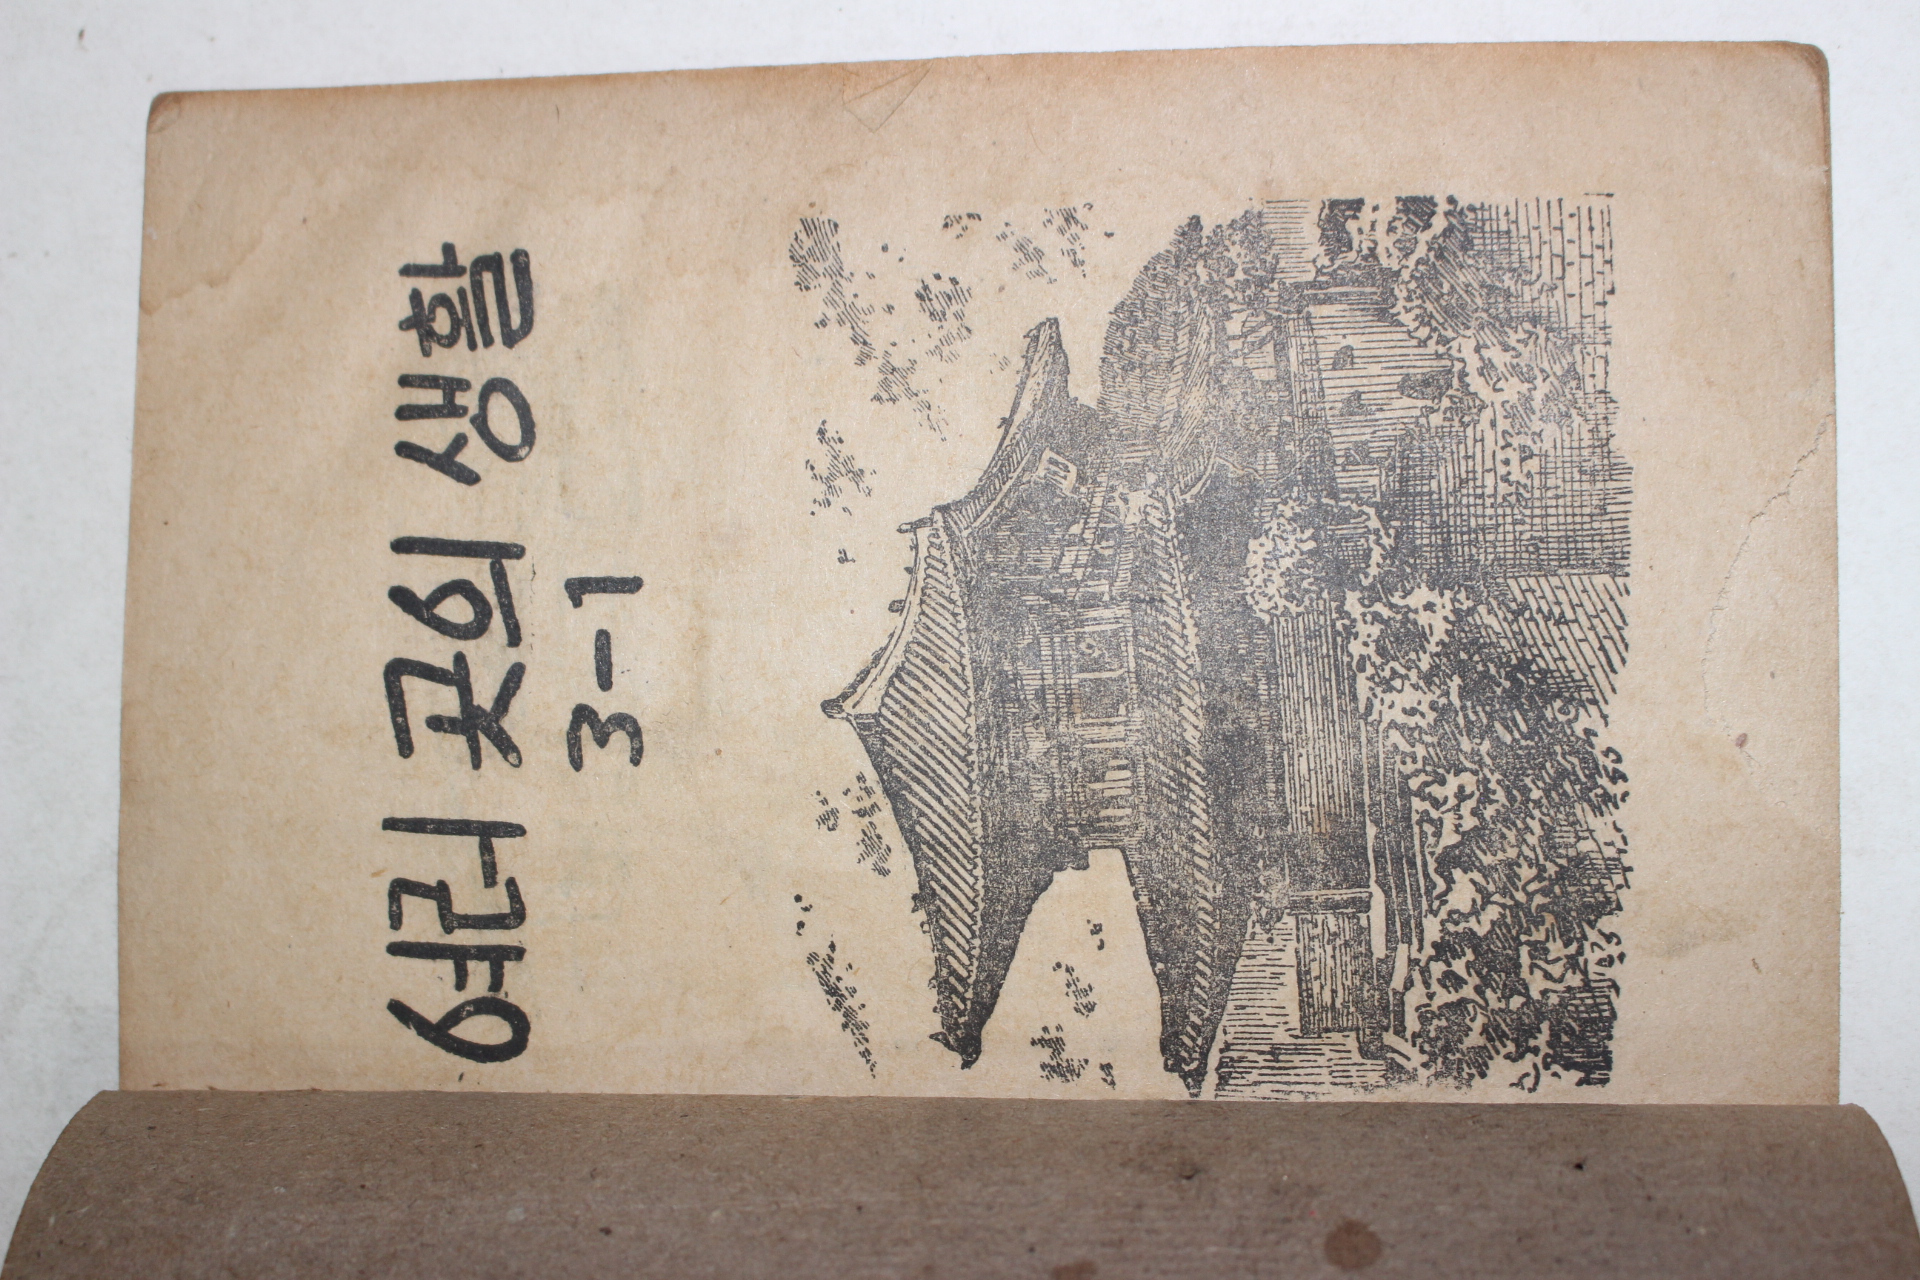 여러 곳의 생활
3-1